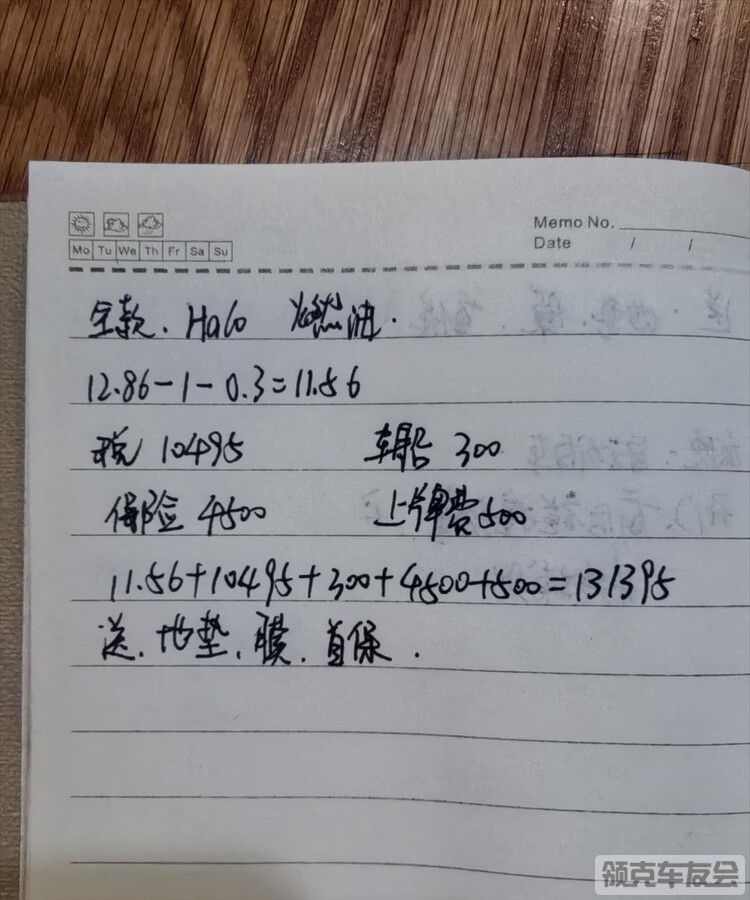 Memo No.
Mo Tu We Th Fr Sa Su
Date / /
全款. Halo 燃油.
12.86-1-0.3=11.56
税 10495 车船 300
保险 4500 上牌费500
11.56+10495+300+4500+500=131395
送. 地垫. 膜. 首保.
领克车友会